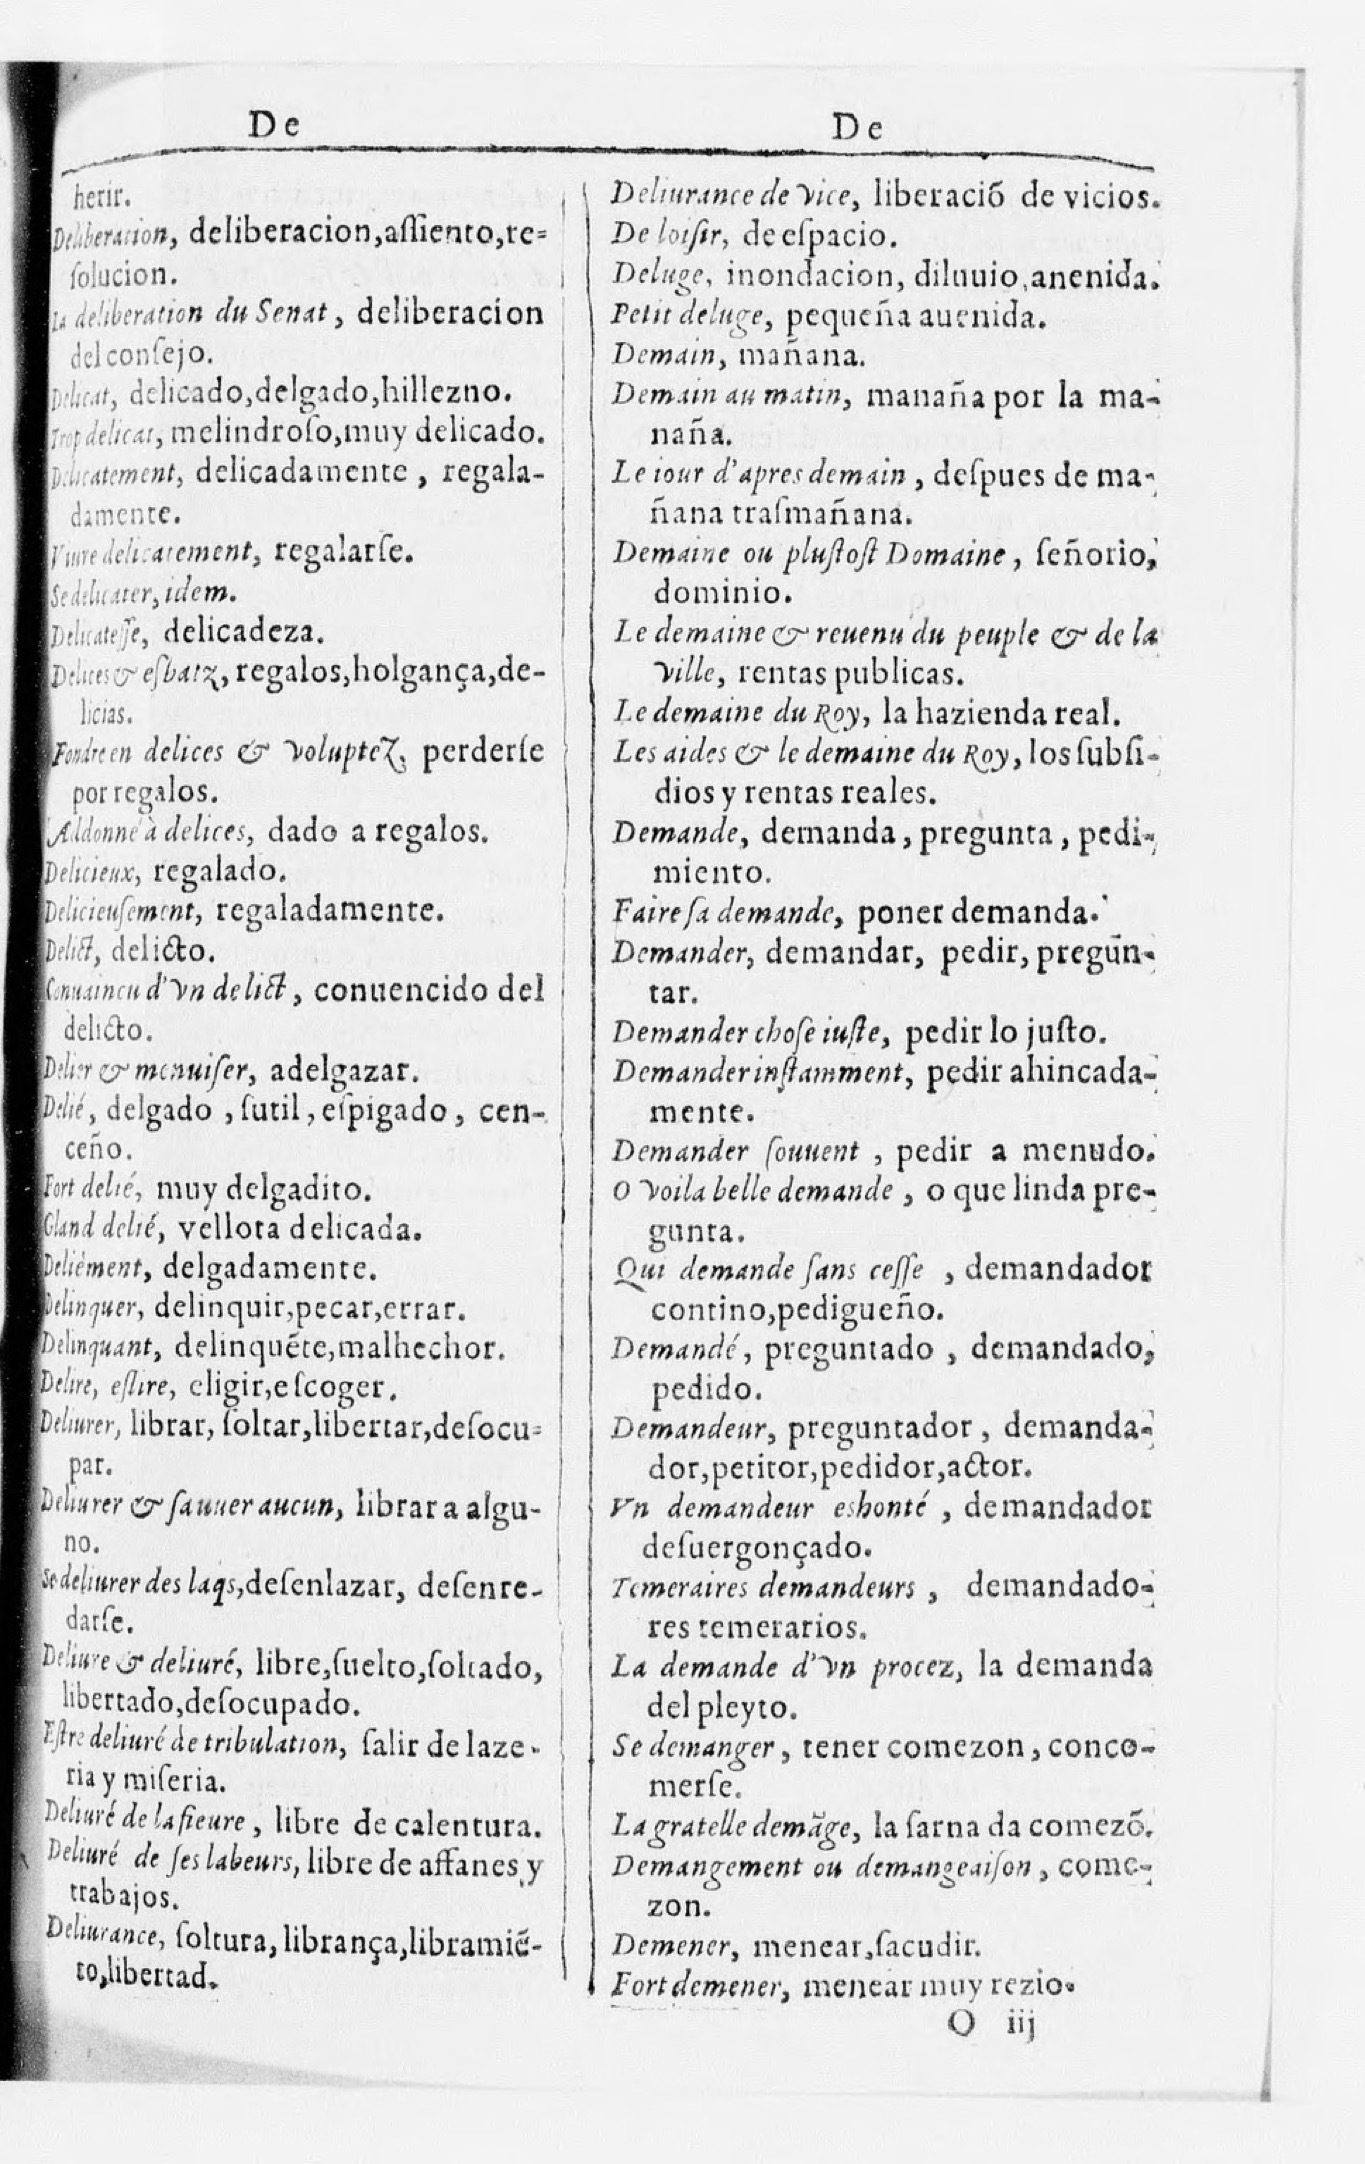 De
herir.
Deliberation, deliberacion,aſſiento,re-
ſolucion.
La deliberation du Senat, deliberacion
del conſejo.
Delicat, delicado,delgado,hillezno.
Trop delicat, melindroſo,muy delicado.
Delicatement, delicadamente, regala-
damente.
Viure delicatement, regalarſe.
Se delicater, idem.
Delicateſſe, delicadeza.
Delices & eſbatz, regalos,holgança,de-
licias.
Fondre en delices & voluptez, perderſe
por regalos.
Addonné à delices, dado a regalos.
Delicieux, regalado.
Delicieuſement, regaladamente.
Delict, delicto.
Conuaincu d'vn delict, conuencido del
delicto.
Delier & menuiſer, adelgazar.
Delié, delgado, ſutil, eſpigado, cen-
ceño.
Fort delié, muy delgadito.
Gland delié, vellota delicada.
Deliément, delgadamente.
Delinquer, delinquir,pecar,errar.
Delinquant, delinquẽte,malhechor.
Delire, eſlire, eligir,eſcoger.
Deliurer, librar, ſoltar,libertar,deſocu-
par.
Deliurer & ſauuer aucun, librar a algu-
no.
Se deliurer des laqs,deſenlazar, deſenre-
darſe.
Deliure & deliuré, libre,ſuelto,ſoltado,
libertado,deſocupado.
Eſtre deliuré de tribulation, ſalir de laze-
ria y miſeria.
Deliuré de la fieure, libre de calentura.
Deliuré de ſes labeurs, libre de affanes y
trabajos.
Deliurance, ſoltura, librança,libramiẽ-
to,libertad.
De
Deliurance de vice, liberaciõ de vicios.
De loiſir, de eſpacio.
Deluge, inondacion, diluuio,anenida.
Petit deluge, pequeña auenida.
Demain, mañana.
Demain au matin, manaña por la ma-
naña.
Le iour d'apres demain, deſpues de ma-
ñana traſmañana.
Demaine ou pluſtoſt Domaine, ſeñorio,
dominio.
Le demaine & reuenu du peuple & de la
ville, rentas publicas.
Le demaine du Roy, la hazienda real.
Les aides & le demaine du Roy, los ſubſi-
dios y rentas reales.
Demande, demanda, pregunta, pedi-
miento.
Faire ſa demande, poner demanda.
Demander, demandar, pedir, pregūn-
tar.
Demander choſe iuſte, pedir lo juſto.
Demander inſtamment, pedir ahincada-
mente.
Demander ſouuent, pedir a menudo.
O voila belle demande, o que linda pre-
gunta.
Qui demande ſans ceſſe, demandador
contino,pedigueño.
Demandé, preguntado, demandado,
pedido.
Demandeur, preguntador, demanda-
dor,petitor,pedidor,actor.
Vn demandeur eshonté, demandador
deſuergonçado.
Temeraires demandeurs, demandado-
res temerarios.
La demande d'vn procez, la demanda
del pleyto.
Se demanger, tener comezon, conco-
merſe.
La gratelle demãge, la ſarna da comezõ.
Demangement ou demangeaiſon, come-
zon.
Demener, menear,ſacudir.
Fort demener, menear muy rezio.
O iij